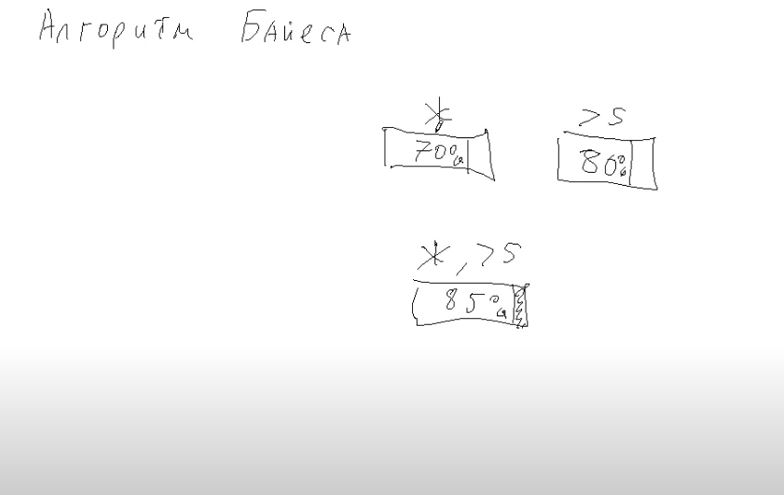 Алгоритм Байеса
Ж >5
70% 80%
Ж, >5
85%